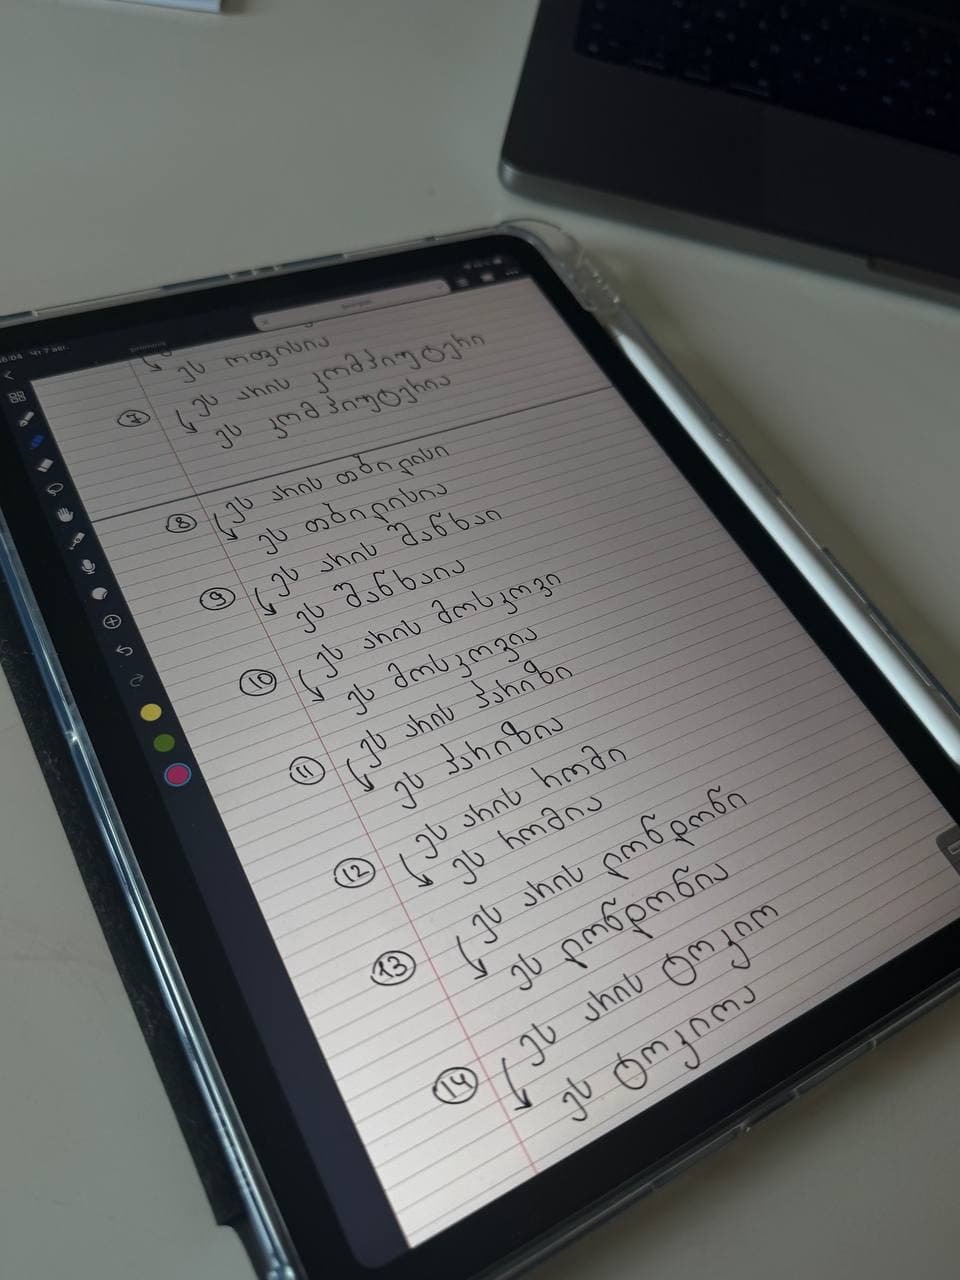 ეს ოფისია
7 ეს არის კომპიუტერი
ეს კომპიუტერია
8 ეს არის თბილისი
ეს თბილისია
9 ეს არის შანხაი
ეს შანხაია
10 ეს არის მოსკოვი
ეს მოსკოვია
11 ეს არის პარიზი
ეს პარიზია
12 ეს არის რომი
ეს რომია
13 ეს არის ლონდონი
ეს ლონდონია
14 ეს არის ტოკიო
ეს ტოკიოა